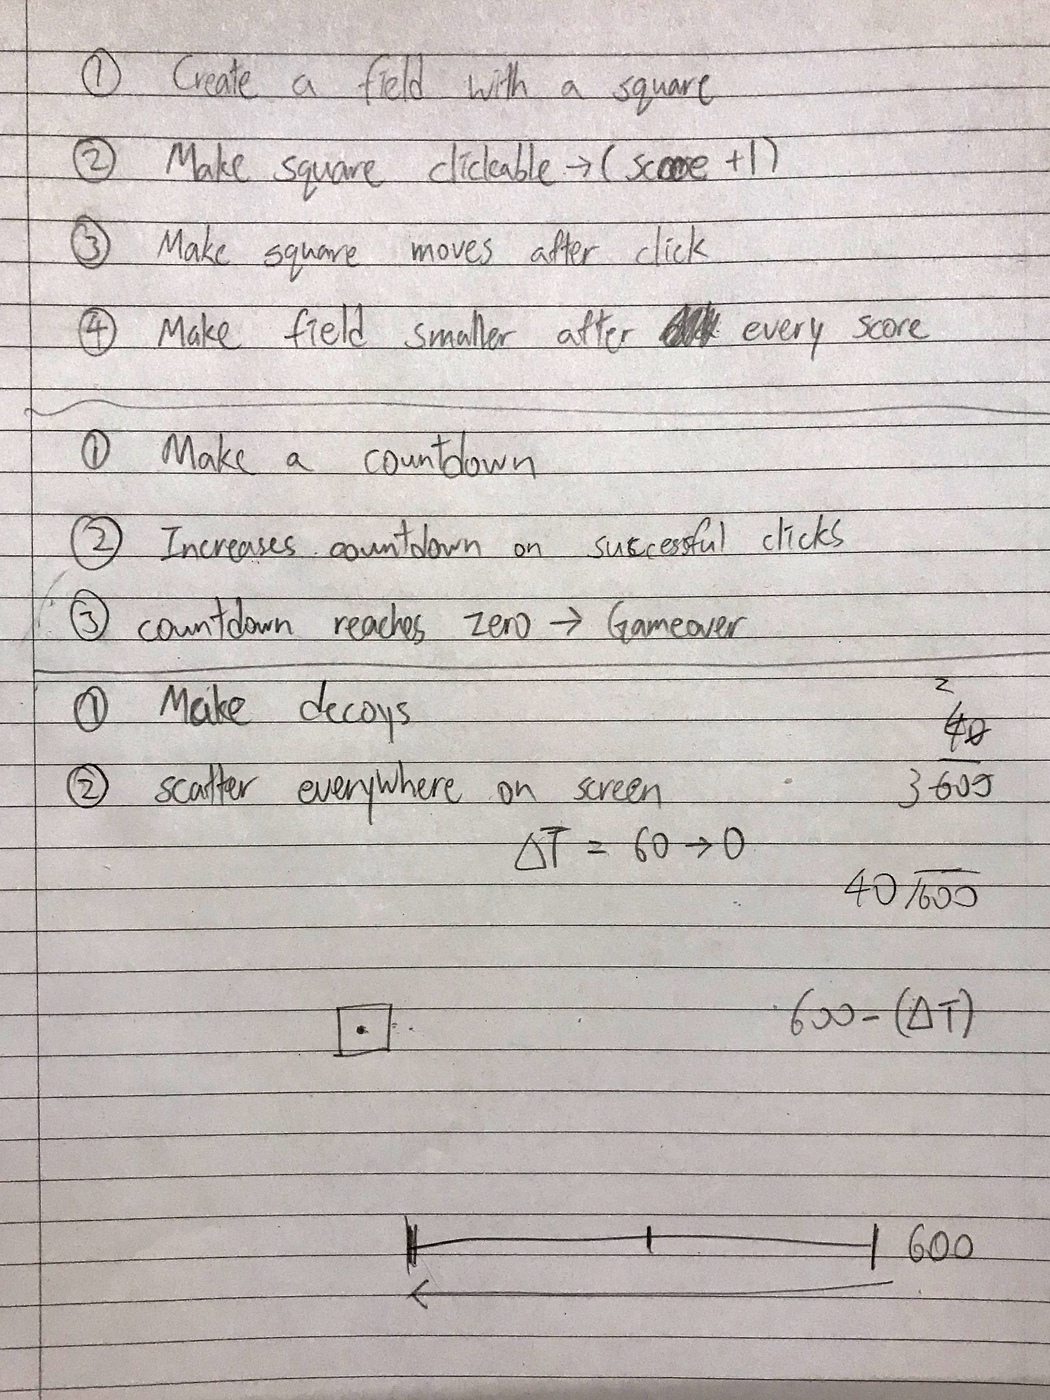 ① Create a field with a square
② Make square clickeable → (score +1)
③ Make square moves after click
④ Make field smaller after every score
① Make a countdown
② Increases countdown on successful clicks
③ countdown reaches zero → Gameover
① Make decoys
② scatter everywhere on screen
2
40
3600
ΔT = 60 → 0
40/600
600 - (ΔT)
600